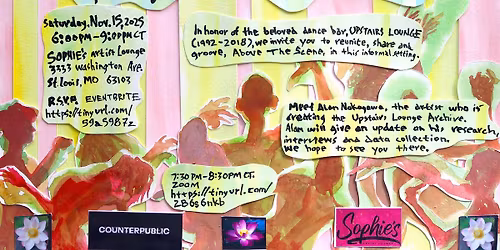 Saturday, Nov. 15, 2025
6:00PM-9:00PM CT
SOPHIE'S Artist Lounge
3333 Washington Ave.
St. Louis, MO 63103
R.S.V.P. EVENTBRITE
https://tinyurl.com/
59a5987z
In honor of the beloved dance bar, UPSTAIRS LOUNGE
(1992-2018), we invite you to reunite, share and
groove, Above The Scene, in this informal setting.
Meet Alan Nakagawa, the artist who is
creating the Upstairs Lounge Archive.
Alan will give an update on his research,
interviews and data collection.
We hope to see you there.
7:30PM-8:30PM CT.
ZOOM
https://tinyurl.com/
COUNTERPUBLIC
Sophie's